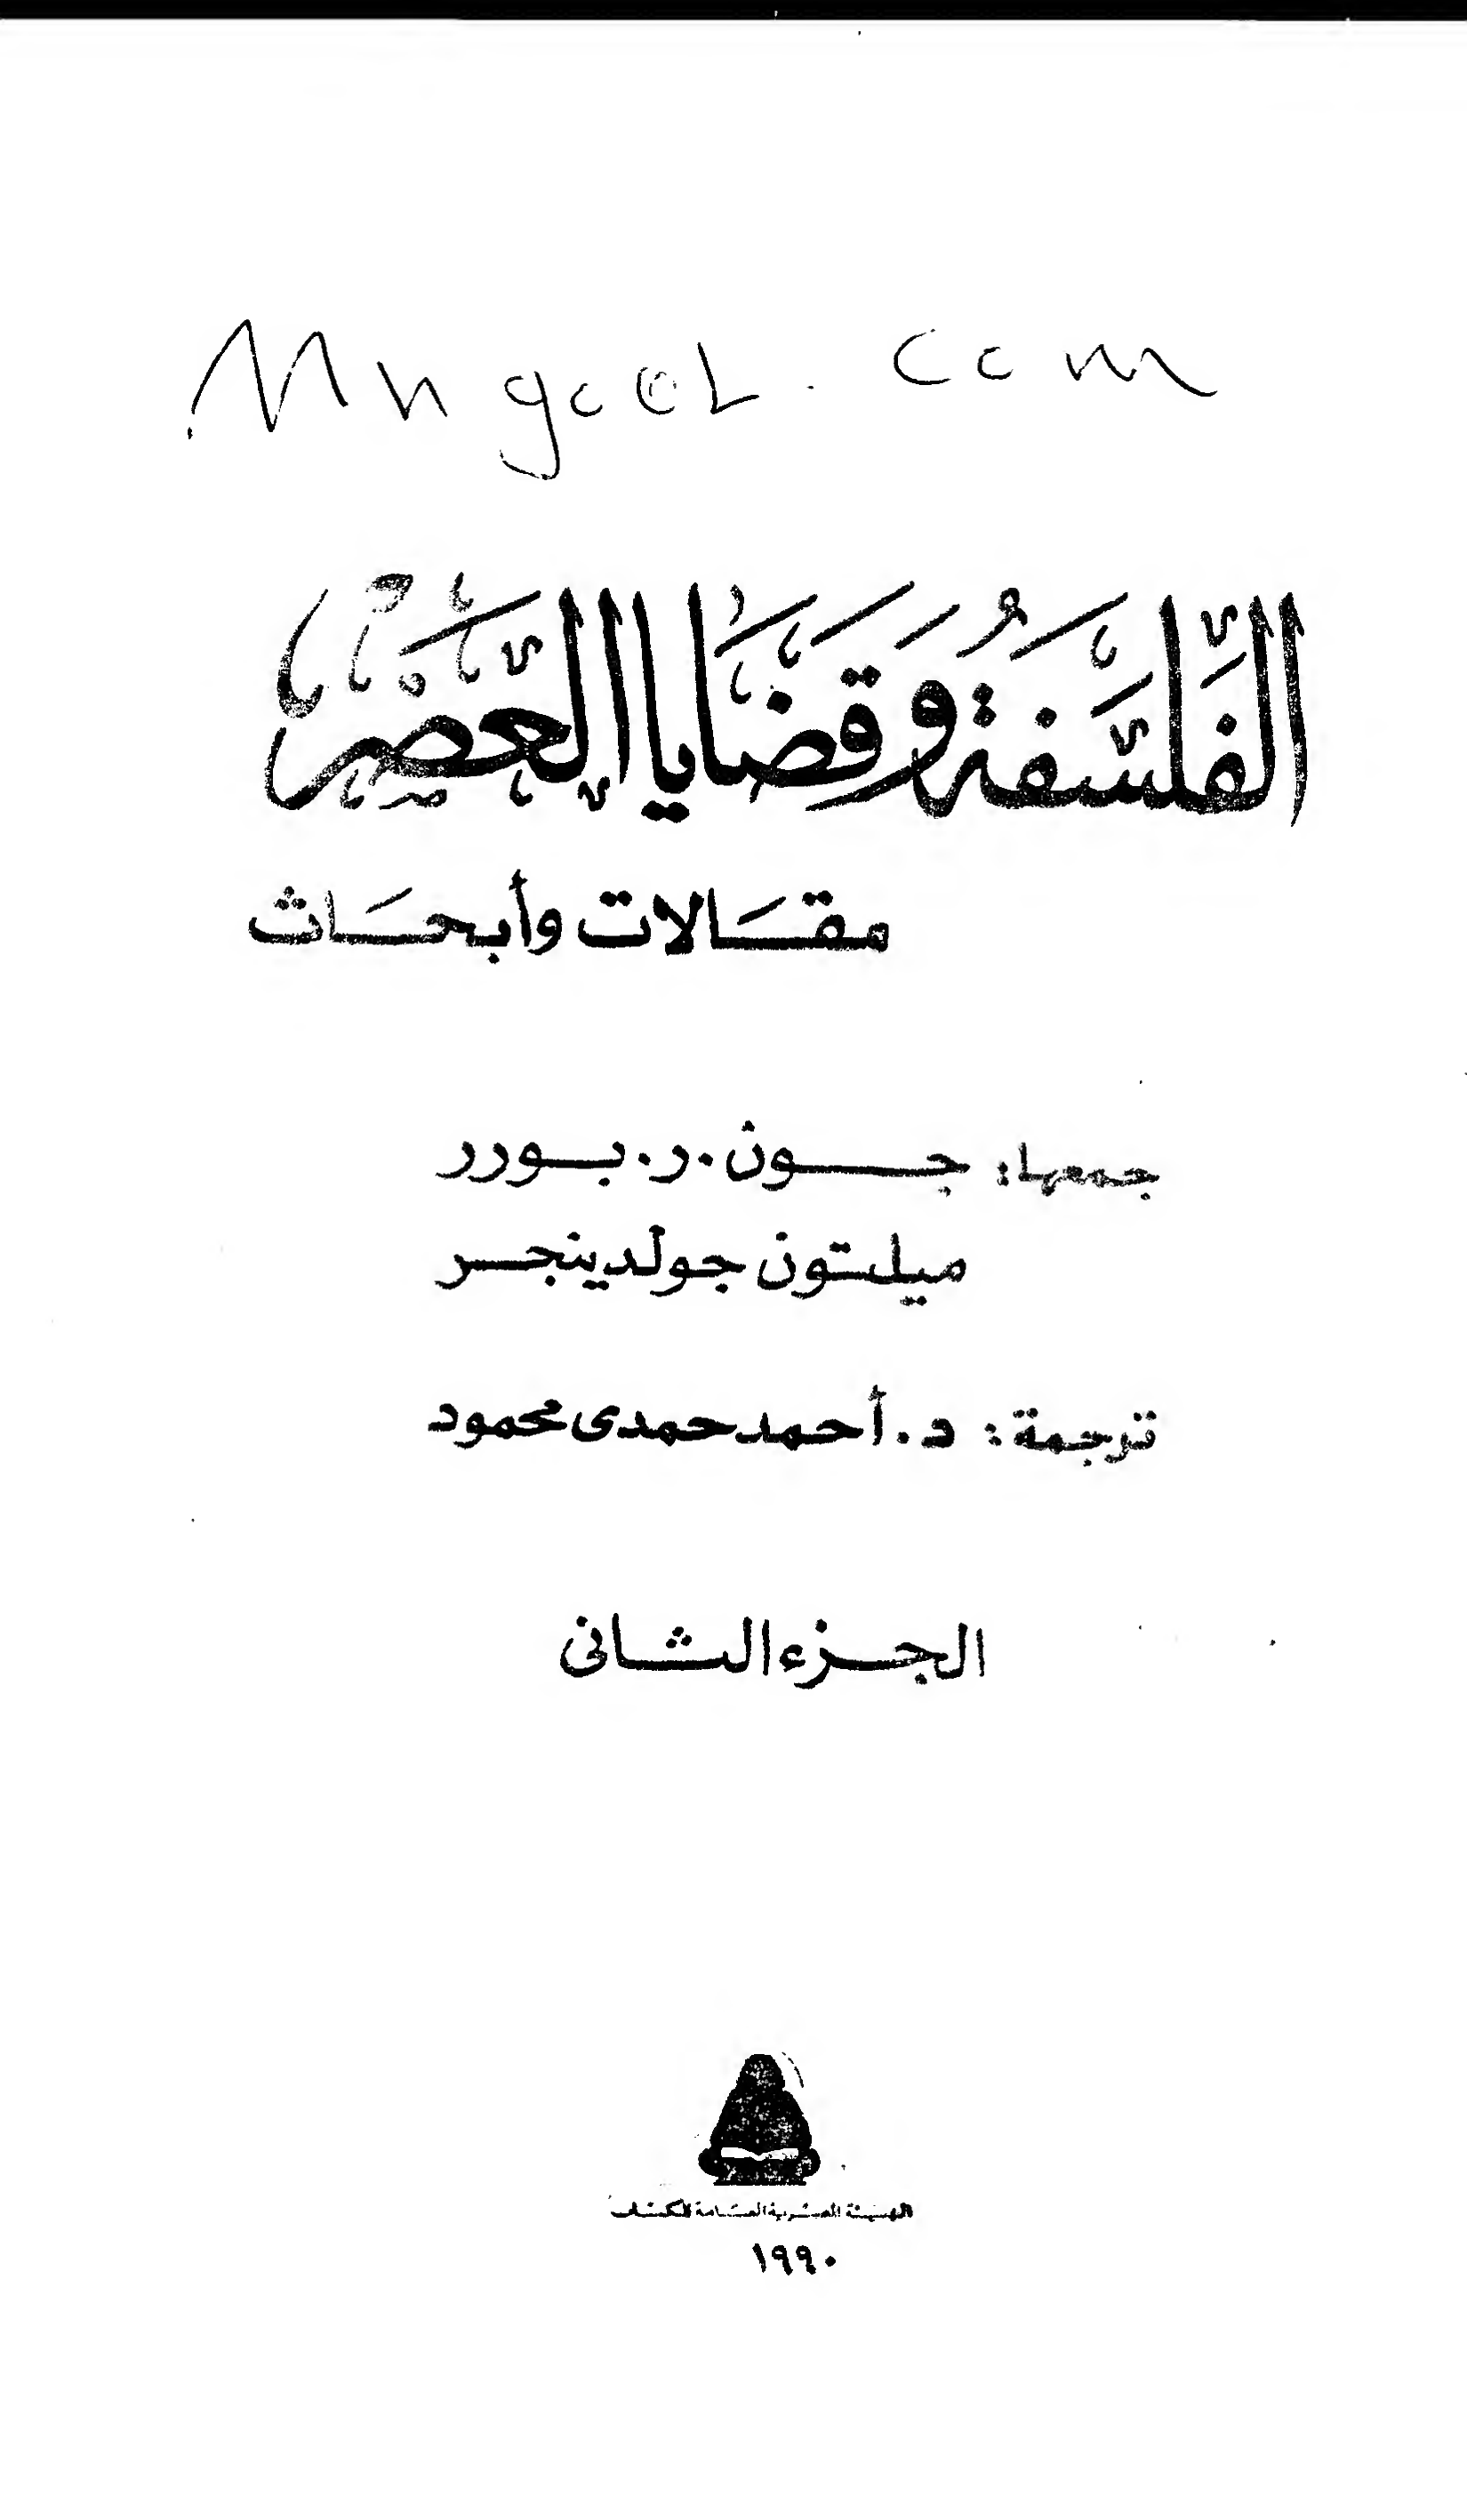 الفلسفة وقضايا العصر
مقالات وأبحاث
جمعها: جون . ر . بورر
ميلتون جولدينجر
ترجمة: د. أحمد حمدى محمود
الجزء الثانى
الهيئة المصرية العامة للكتاب
١٩٩٠